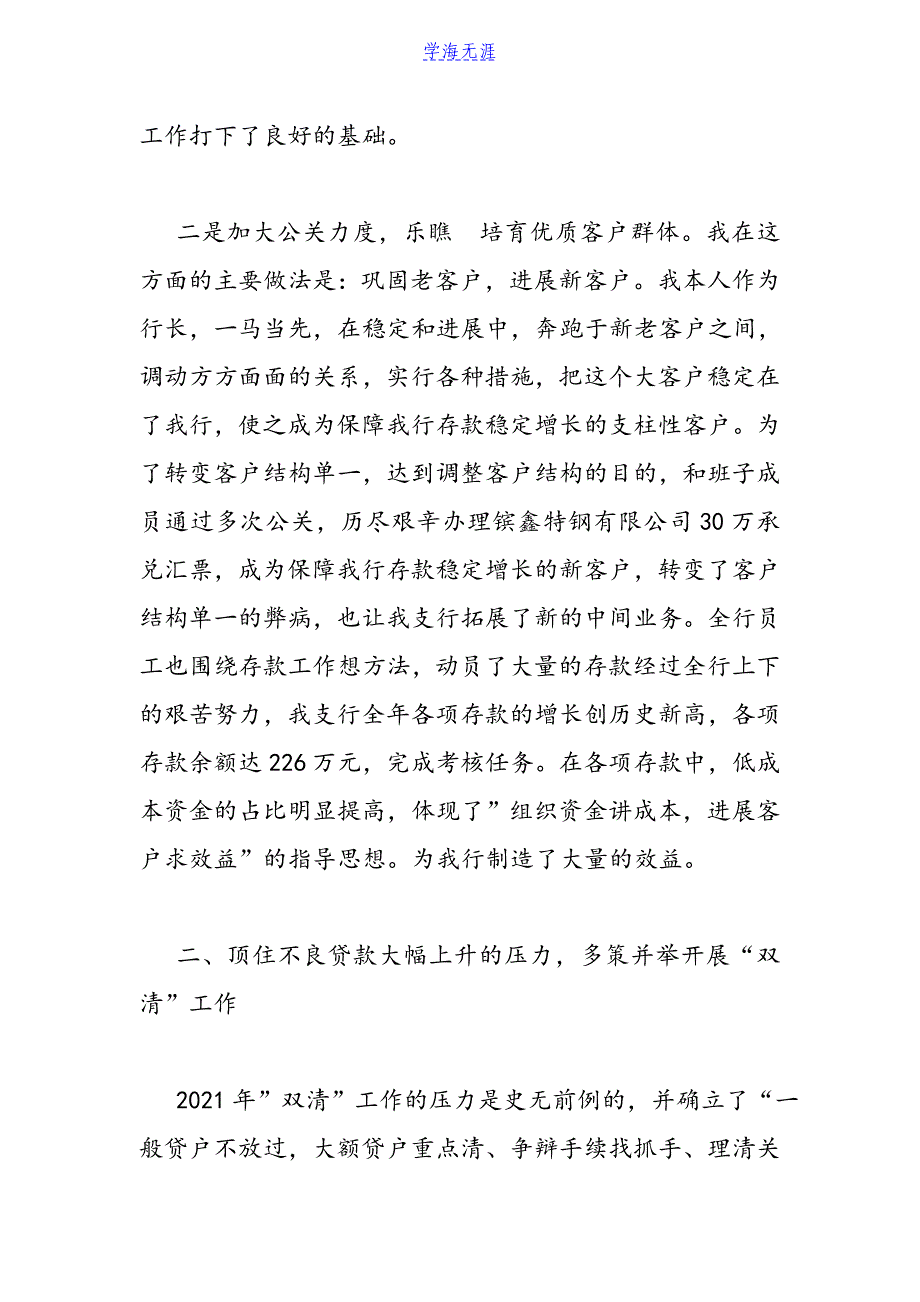 学海无涯
工作打下了良好的基础。
二是加大公关力度，乐瞧　培育优质客户群体。我在这
方面的主要做法是：巩固老客户，进展新客户。我本人作为
行长，一马当先，在稳定和进展中，奔跑于新老客户之间，
调动方方面面的关系，实行各种措施，把这个大客户稳定在
了我行，使之成为保障我行存款稳定增长的支柱性客户。为
了转变客户结构单一，达到调整客户结构的目的，和班子成
员通过多次公关，历尽艰辛办理镔鑫特钢有限公司30万承
兑汇票，成为保障我行存款稳定增长的新客户，转变了客户
结构单一的弊病，也让我支行拓展了新的中间业务。全行员
工也围绕存款工作想方法，动员了大量的存款经过全行上下
的艰苦努力，我支行全年各项存款的增长创历史新高，各项
存款余额达226万元，完成考核任务。在各项存款中，低成
本资金的占比明显提高，体现了”组织资金讲成本，进展客
户求效益”的指导思想。为我行制造了大量的效益。
二、顶住不良贷款大幅上升的压力，多策并举开展“双
清”工作
2021年”双清”工作的压力是史无前例的，并确立了“一
般贷户不放过，大额贷户重点清、争辩手续找抓手、理清关